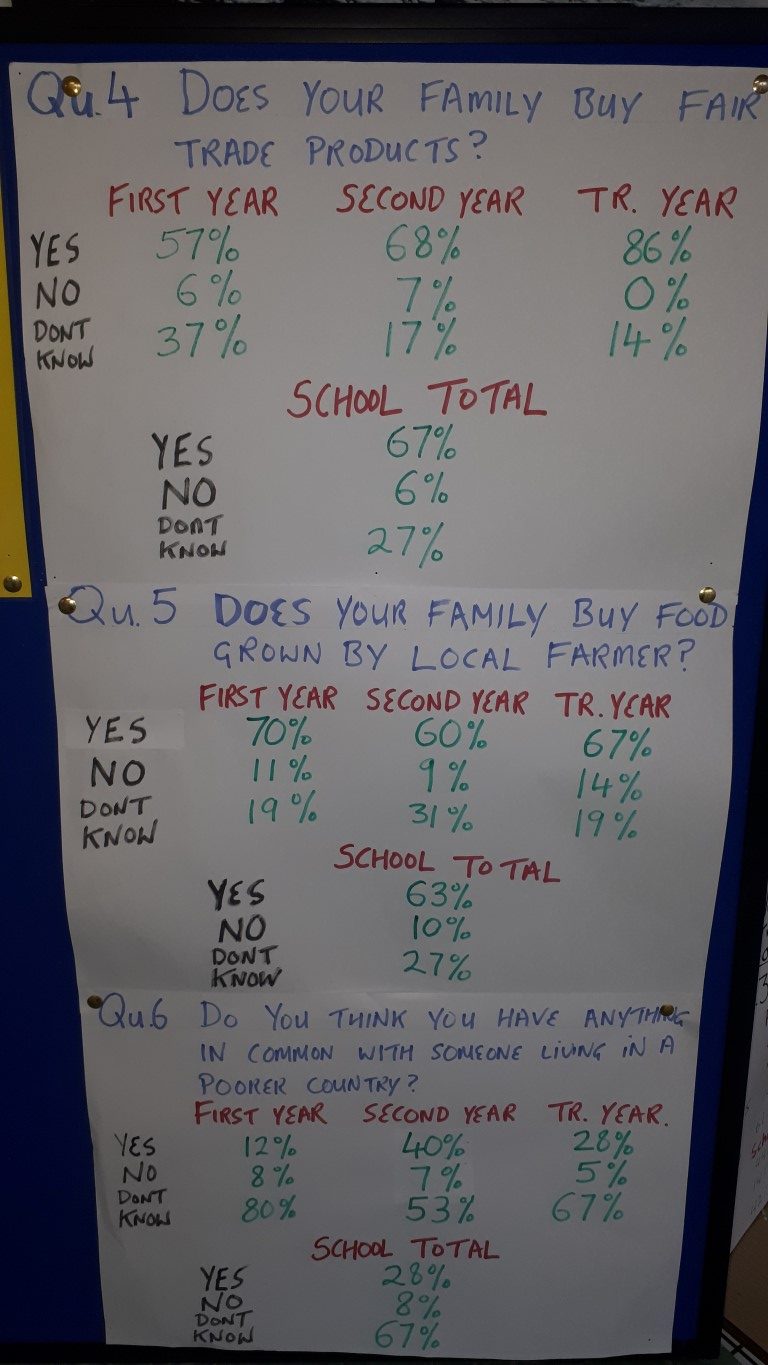 Qu.4 DOES YOUR FAMILY BUY FAIR
TRADE PRODUCTS?
FIRST YEAR SECOND YEAR TR. YEAR
YES 57% 68% 86%
NO 6% 7% 0%
DONT
KNOW 37% 17% 14%
SCHOOL TOTAL
YES 67%
NO 6%
DONT
KNOW 27%
Qu.5 DOES YOUR FAMILY BUY FOOD
GROWN BY LOCAL FARMER?
FIRST YEAR SECOND YEAR TR. YEAR
YES 70% 60% 67%
NO 11% 9% 14%
DONT
KNOW 19% 31% 19%
SCHOOL TOTAL
YES 63%
NO 10%
DONT
KNOW 27%
Qu.6 DO YOU THINK YOU HAVE ANYTHING
IN COMMON WITH SOMEONE LIVING IN A
POORER COUNTRY?
FIRST YEAR SECOND YEAR TR. YEAR.
YES 12% 40% 28%
NO 8% 7% 5%
DONT
KNOW 80% 53% 67%
SCHOOL TOTAL
YES 28%
NO 8%
DONT
KNOW 67%